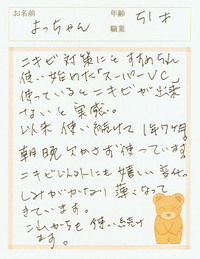 お名前 よっちゃん 年齢 51才
職業
ニキビ対策にと すすめられ
使い始めた「スーパーVC」
使っているとニキビが出来
ないと実感。
以来 使い続けて 1年7ヶ月。
朝晩 欠かさず使っています。
ニキビ以外にも嬉しい変化。
しみがかなり 薄くなって
きています。
これからも使い続け
ます。